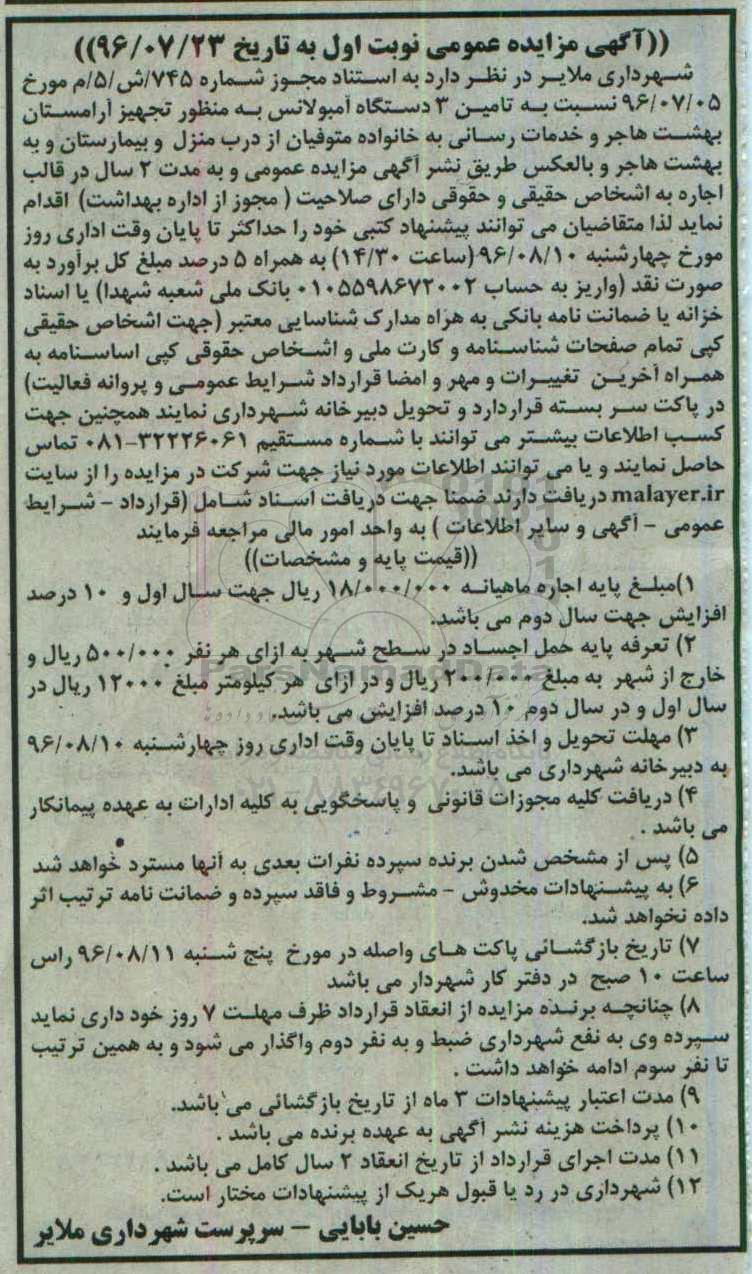 ((آگهی مزایده عمومی نوبت اول به تاریخ ۹۶/۰۷/۲۳))
شهرداری ملایر در نظر دارد به استناد مجوز شماره ۷۴۵/ش/۵/م مورخ
۹۶/۰۷/۰۵ نسبت به تامین ۳ دستگاه آمبولانس به منظور تجهیز آرامستان
بهشت هاجر و خدمات رسانی به خانواده متوفیان از درب منزل و بیمارستان و به
بهشت هاجر و بالعکس طریق نشر آگهی مزایده عمومی و به مدت ۲ سال در قالب
اجاره به اشخاص حقیقی و حقوقی دارای صلاحیت ( مجوز از اداره بهداشت) اقدام
نماید لذا متقاضیان می توانند پیشنهاد کتبی خود را حداکثر تا پایان وقت اداری روز
مورخ چهارشنبه ۹۶/۰۸/۱۰ (ساعت ۱۴/۳۰) به همراه ۵ درصد مبلغ کل برآورد به
صورت نقد (واریز به حساب ۰۱۰۵۵۹۸۶۷۲۰۰۲ بانک ملی شعبه شهدا) یا اسناد
خزانه یا ضمانت نامه بانکی به هزاه مدارک شناسایی معتبر (جهت اشخاص حقیقی
کپی تمام صفحات شناسنامه و کارت ملی و اشخاص حقوقی کپی اساسنامه به
همراه آخرین تغییرات و مهر و امضا قرارداد شرایط عمومی و پروانه فعالیت)
در پاکت سر بسته قراردارد و تحویل دبیرخانه شهرداری نمایند همچنین جهت
کسب اطلاعات بیشتر می توانند با شماره مستقیم ۳۲۲۲۶۰۶۱-۰۸۱ تماس
حاصل نمایند و یا می توانند اطلاعات مورد نیاز جهت شرکت در مزایده را از سایت
malayer.ir دریافت دارند ضمنا جهت دریافت اسناد شامل (قرارداد - شرایط
عمومی - آگهی و سایر اطلاعات ) به واحد امور مالی مراجعه فرمایند
((قیمت پایه و مشخصات))
۱)مبلغ پایه اجاره ماهیانه ۱۸/۰۰۰/۰۰۰ ریال جهت سال اول و ۱۰ درصد
افزایش جهت سال دوم می باشد.
۲) تعرفه پایه حمل اجساد در سطح شهر به ازای هر نفر ۵۰۰/۰۰۰ ریال و
خارج از شهر به مبلغ ۲۰۰/۰۰۰ ریال و در ازای هر کیلومتر مبلغ ۱۲۰۰۰ ریال در
سال اول و در سال دوم ۱۰ درصد افزایش می باشد.
۳) مهلت تحویل و اخذ اسناد تا پایان وقت اداری روز چهارشنبه ۹۶/۰۸/۱۰
به دبیرخانه شهرداری می باشد.
۴) دریافت کلیه مجوزات قانونی و پاسخگویی به کلیه ادارات به عهده پیمانکار
می باشد .
۵) پس از مشخص شدن برنده سپرده نفرات بعدی به آنها مسترد خواهد شد
۶) به پیشنهادات مخدوش - مشروط و فاقد سپرده و ضمانت نامه ترتیب اثر
داده نخواهد شد.
۷) تاریخ بازگشائی پاکت های واصله در مورخ پنج شنبه ۹۶/۰۸/۱۱ راس
ساعت ۱۰ صبح در دفتر کار شهردار می باشد
۸) چنانچه برنده مزایده از انعقاد قرارداد ظرف مهلت ۷ روز خود داری نماید
سپرده وی به نفع شهرداری ضبط و به نفر دوم واگذار می شود و به همین ترتیب
تا نفر سوم ادامه خواهد داشت .
۹) مدت اعتبار پیشنهادات ۳ ماه از تاریخ بازگشائی می باشد.
۱۰) پرداخت هزینه نشر آگهی به عهده برنده می باشد .
۱۱) مدت اجرای قرارداد از تاریخ انعقاد ۲ سال کامل می باشد .
۱۲) شهرداری در رد یا قبول هریک از پیشنهادات مختار است.
حسین بابایی - سرپرست شهرداری ملایر